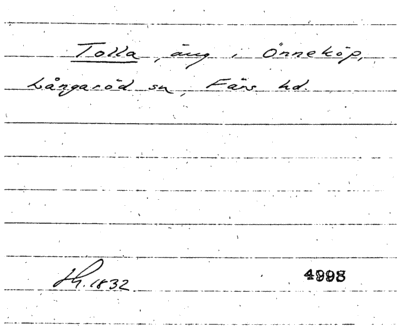 Tolla, äng i Önneköp,
Långaröd sn, Färs hd.
Lh. 1832 4998